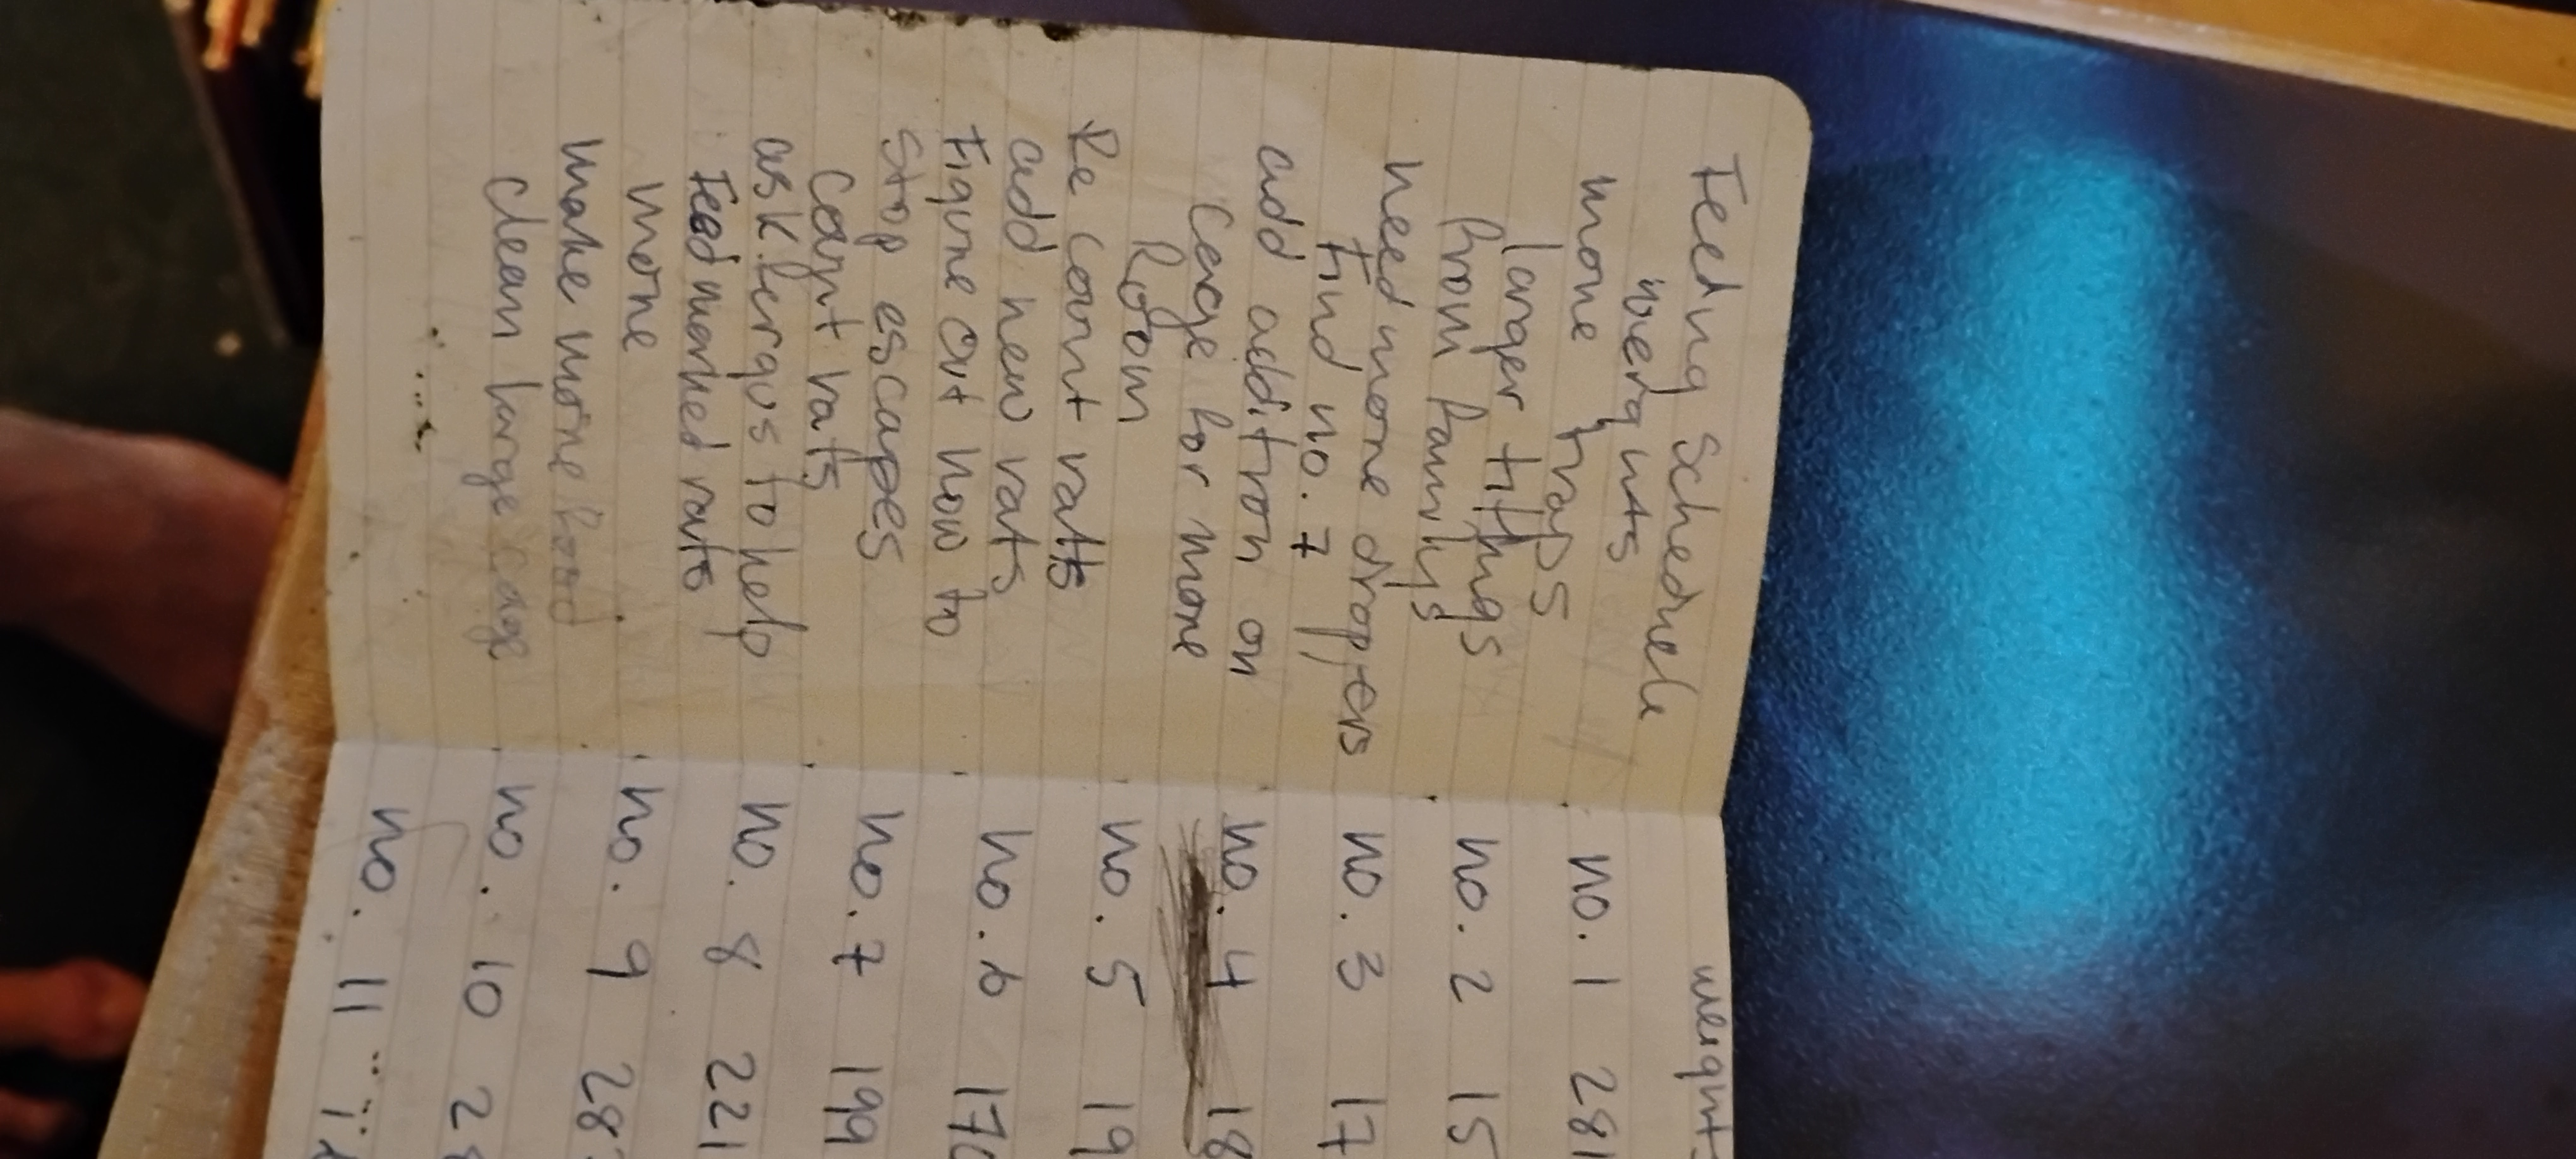 Feeding Schedule
weights
more traps
larger tithings
from family's
need more droppers
Find no. 7
add addition on
cage for more
Room
Re count rats
add new rats
Figure out how to
Stop escapes
Count rats
ask fergus to help
Feed marked rats
more
make more food
clean large cage
weight
no. 1 281
no. 2 15
no. 3 17
no. 4 18
no. 5 19
no. 6 170
no. 7 199
no. 8 221
no. 9 28
no. 10 28
no. 11